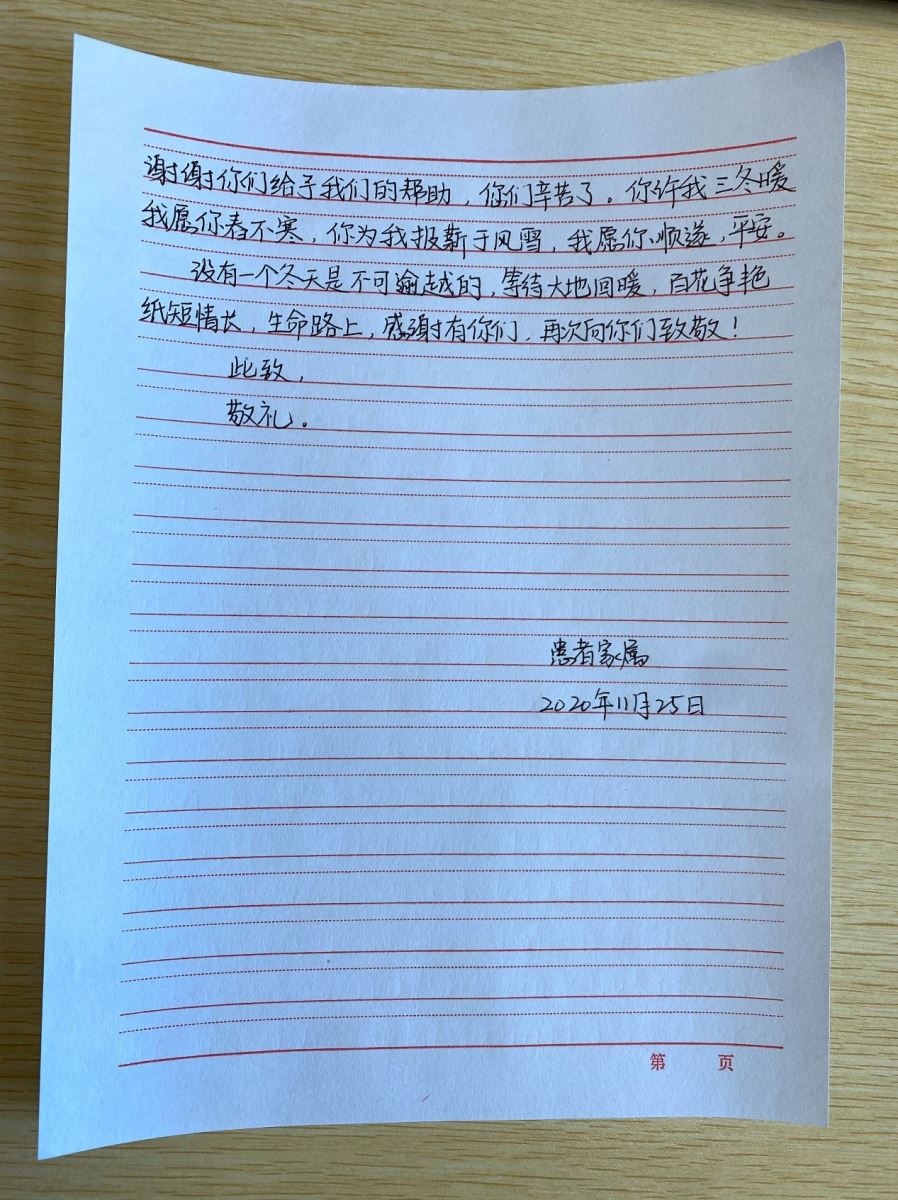 谢谢你们给予我们的帮助，你们辛苦了。你许我三冬暖
我愿你春不寒，你为我报薪于风雪，我愿你顺遂，平安。
没有一个冬天是不可逾越的，等待大地回暖，百花争艳
纸短情长，生命路上，感谢有你们，再次向你们致敬！
此致，
敬礼。
患者家属
2020年11月25日
第 页